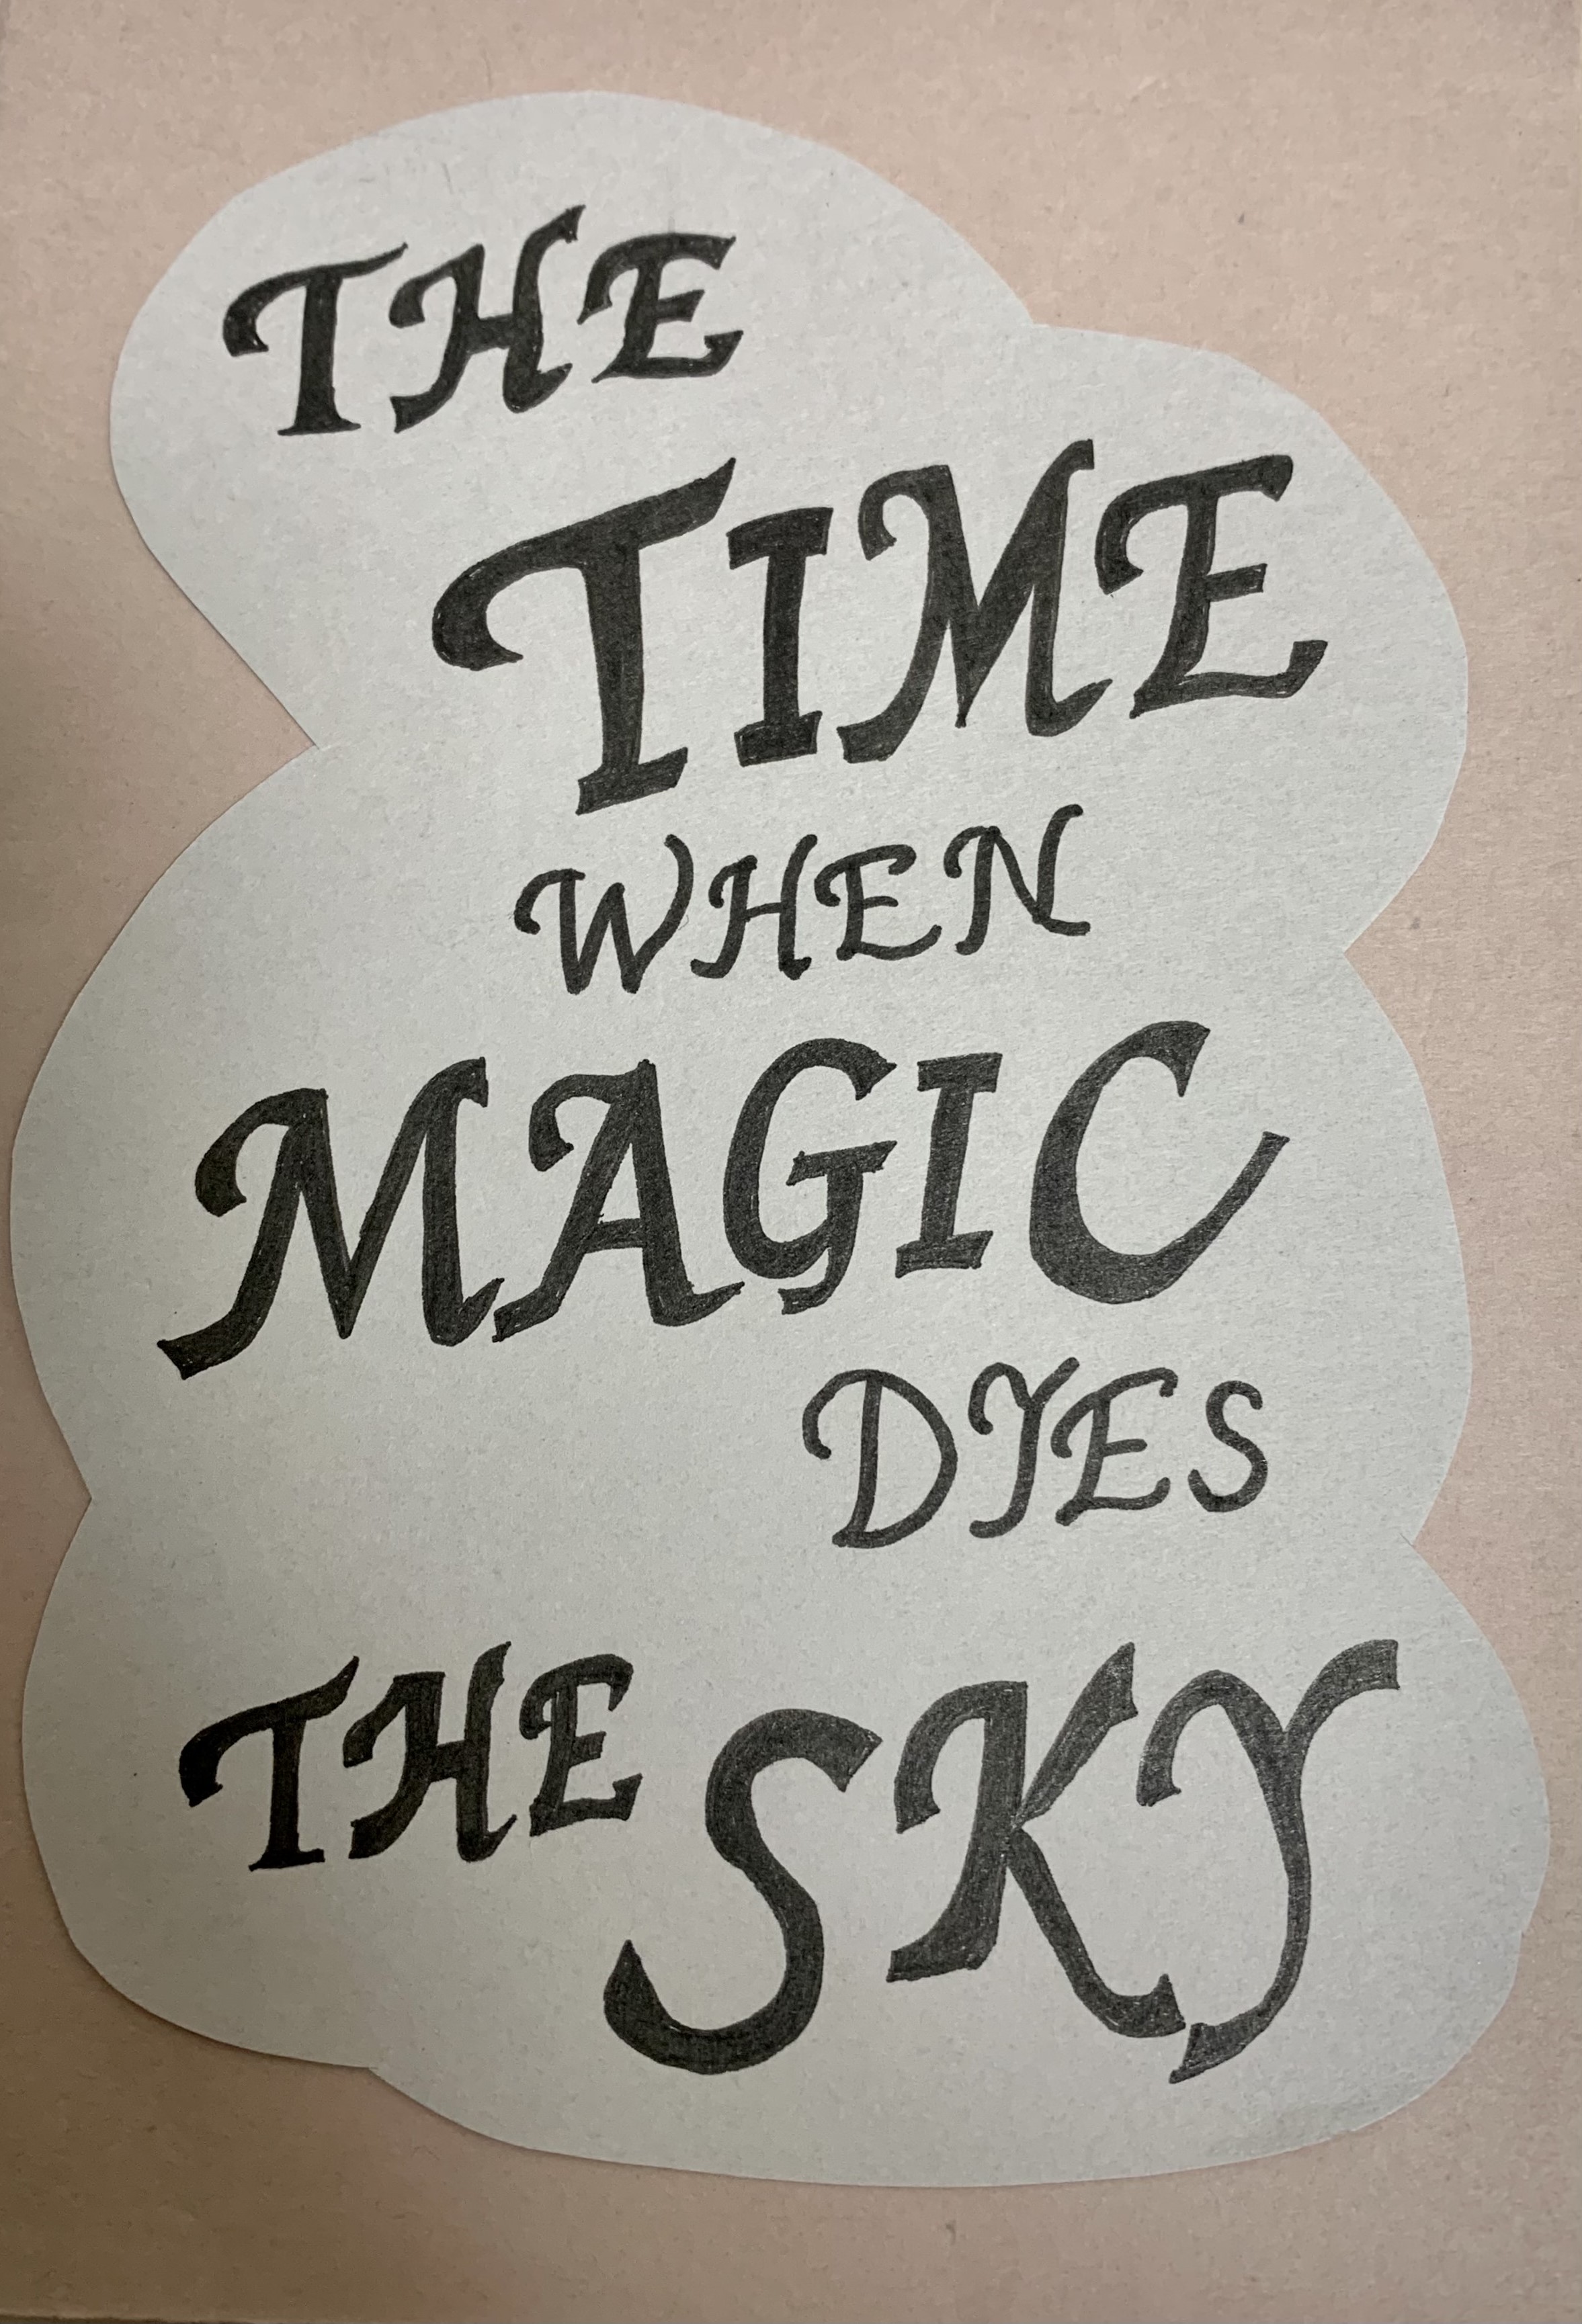 THE
TIME
WHEN
MAGIC
DYES
THE SKY